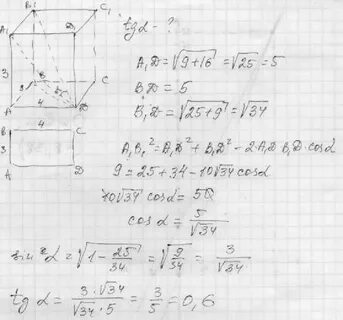 B₁ C₁
A₁ D₁
3 B C
3
A 4 D
4
B C
3
A D
tg α - ?
A₁D = √9+16 = √25 = 5
B₁D = 5
B₁D = √25+9 = √34
A₁B₁² = A₁D² + B₁D² - 2·A₁D·B₁D·cos α
9 = 25 + 34 - 10√34 cos α
10√34 cos α = 50
cos α = 5/√34
sin² α = √1 - 25/34 = √9/34 = 3/√34
tg α = 3·√34/√34·5 = 3/5 = 0,6